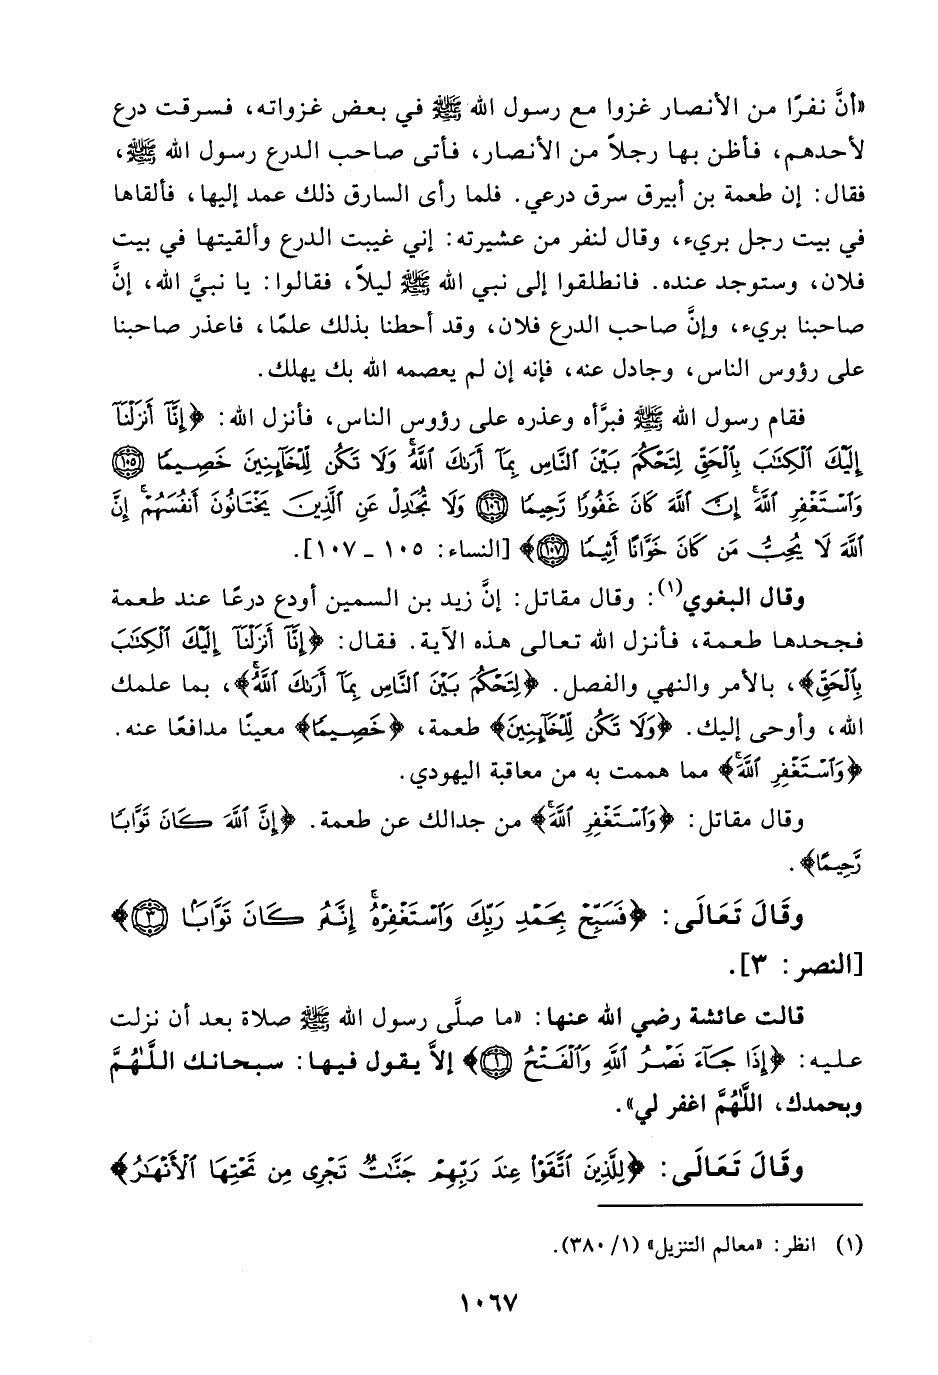 «أنَّ نفرًا من الأنصار غزوا مع رسول الله ﷺ في بعض غزواته، فسرقت درع
لأحدهم، فأظن بها رجلاً من الأنصار، فأتى صاحب الدرع رسول الله ﷺ،
فقال: إن طعمة بن أبيرق سرق درعي. فلما رأى السارق ذلك عمد إليها، فألقاها
في بيت رجل بريء، وقال لنفر من عشيرته: إني غيبت الدرع وألقيتها في بيت
فلان، وستوجد عنده. فانطلقوا إلى نبي الله ﷺ ليلاً، فقالوا: يا نبيَّ الله، إنَّ
صاحبنا بريء، وإنَّ صاحب الدرع فلان، وقد أحطنا بذلك علمًا، فاعذر صاحبنا
على رؤوس الناس، وجادل عنه، فإنه إن لم يعصمه الله بك يهلك.
فقام رسول الله ﷺ فبرَّأه وعذره على رؤوس الناس، فأنزل الله: ﴿إِنَّآ أَنزَلْنَآ
إِلَيْكَ ٱلْكِتَٰبَ بِٱلْحَقِّ لِتَحْكُمَ بَيْنَ ٱلنَّاسِ بِمَآ أَرَىٰكَ ٱللَّهُ ۚ وَلَا تَكُن لِّلْخَآئِنِينَ خَصِيمًا ١٠٥
وَٱسْتَغْفِرِ ٱللَّهَ ۖ إِنَّ ٱللَّهَ كَانَ غَفُورًا رَّحِيمًا ١٠٦ وَلَا تُجَٰدِلْ عَنِ ٱلَّذِينَ يَخْتَانُونَ أَنفُسَهُمْ ۚ إِنَّ
ٱللَّهَ لَا يُحِبُّ مَن كَانَ خَوَّانًا أَثِيمًا ١٠٧﴾ [النساء: ١٠٥ ـ ١٠٧].
وقال البغوي(١): وقال مقاتل: إنَّ زيد بن السمين أودع درعًا عند طعمة
فجحدها طعمة، فأنزل الله تعالى هذه الآية. فقال: ﴿إِنَّآ أَنزَلْنَآ إِلَيْكَ ٱلْكِتَٰبَ
بِٱلْحَقِّ﴾، بالأمر والنهي والفصل. ﴿لِتَحْكُمَ بَيْنَ ٱلنَّاسِ بِمَآ أَرَىٰكَ ٱللَّهُ ۚ﴾، بما علمك
الله، وأوحى إليك. ﴿وَلَا تَكُن لِّلْخَآئِنِينَ﴾ طعمة، ﴿خَصِيمًا﴾ معينًا مدافعًا عنه.
﴿وَٱسْتَغْفِرِ ٱللَّهَ ۖ﴾ مما هممت به من معاقبة اليهودي.
وقال مقاتل: ﴿وَٱسْتَغْفِرِ ٱللَّهَ ۖ﴾ من جدالك عن طعمة. ﴿إِنَّ ٱللَّهَ كَانَ تَوَّابًا
رَّحِيمًا﴾.
وقَالَ تَعَالَى: ﴿فَسَبِّحْ بِحَمْدِ رَبِّكَ وَٱسْتَغْفِرْهُ ۚ إِنَّهُۥ كَانَ تَوَّابًۢا ٣﴾
[النصر: ٣].
قالت عائشة رضي الله عنها: «ما صلَّى رسول الله ﷺ صلاة بعد أن نزلت
عليه: ﴿إِذَا جَآءَ نَصْرُ ٱللَّهِ وَٱلْفَتْحُ ١﴾ إلاَّ يقول فيها: سبحانك اللَّهُمَّ
وبحمدك، اللَّهُمَّ اغفر لي».
وقَالَ تَعَالَى: ﴿لِلَّذِينَ ٱتَّقَوْا۟ عِندَ رَبِّهِمْ جَنَّٰتٌ تَجْرِى مِن تَحْتِهَا ٱلْأَنْهَٰرُ﴾
(١) انظر: «معالم التنزيل» (١/ ٣٨٠).
١٠٦٧